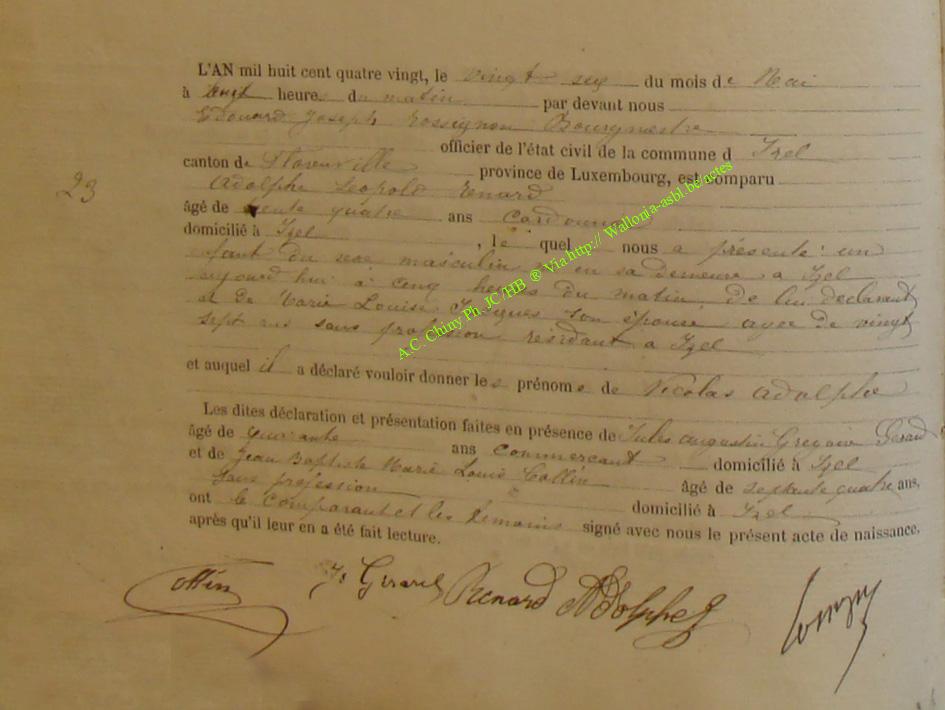 L'AN mil huit cent quatre vingt, le vingt six du mois de Mai
à huit heures du matin par devant nous
Edouard Joseph Rossignon Bourgmestre
officier de l'état civil de la commune d Izel
canton de Florenville province de Luxembourg, est comparu
23
Adolphe Leopold Renard
âgé de trente quatre ans
domicilié à Izel, le quel nous a présenté un
enfant du sexe masculin né en sa demeure a Izel
aujourd hui à cinq heures du matin, de lui déclarant
et de Marie Louise son épouse agée de vingt
sept ans sans profession résidant a Izel
et auquel il a déclaré vouloir donner les prénoms de Nicolas Adolphe
Les dites déclaration et présentation faites en présence de Jules Augustin Gregoire Gerard
âgé de quarante ans commercant domicilié à Izel
et de Jean Baptiste Marie Louis Collin âgé de septante quatre ans,
sans profession domicilié à Izel
ont le comparant et les témoins signé avec nous le présent acte de naissance,
après qu'il leur en a été fait lecture.
Collin Js Gerard Renard Adolphe
A.C. Chiny Ph. JC/HB ® Via http:// Wallonia-asbl.be/actes